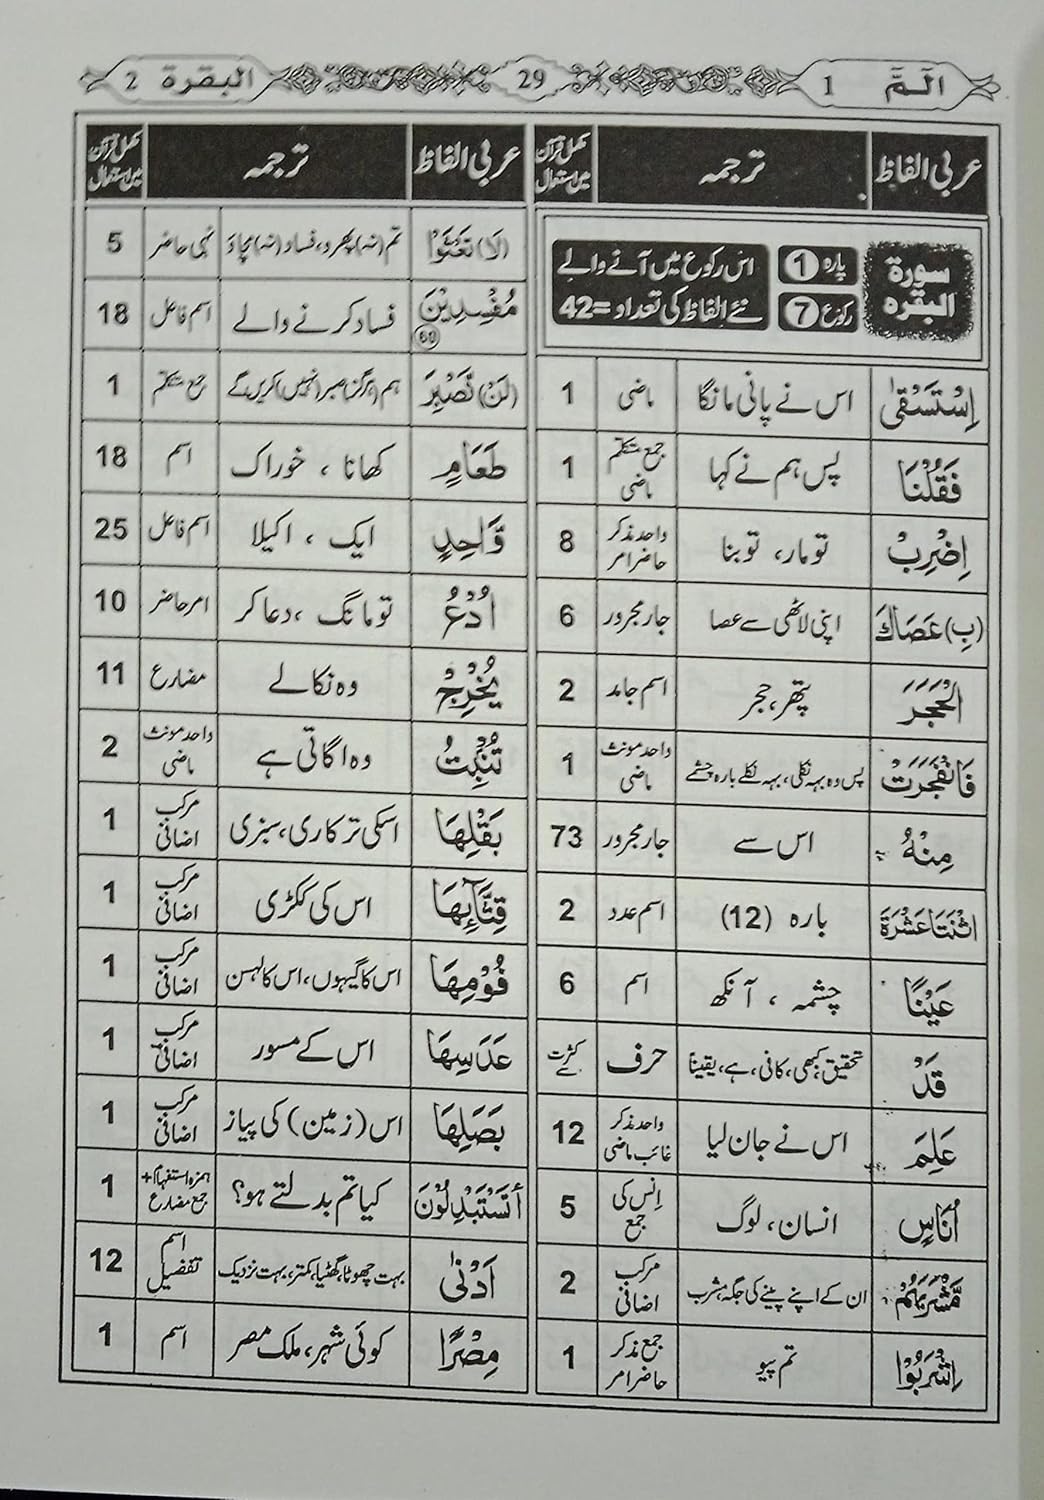 الٓـمّٓ 1
29
البقرة 2
عربی الفاظ ترجمہ مکمل قرآن میں استعمال
سورۃ البقرہ پارہ 1 رکوع 7
اس رکوع میں آنے والے
نئے الفاظ کی تعداد =42
اِسْتَسْقٰى اس نے پانی مانگا ماضی 1
فَقُلْنَا پس ہم نے کہا جمع متکلم ماضی 1
اِضْرِبْ تو مار، تو بنا واحد مذکر حاضر امر 8
(بِ) عَصَاكَ اپنی لاٹھی سے عصا جار مجرور 6
الْحَجَرَ پتھر، حجر اسم جامد 2
فَانْفَجَرَتْ پس وہ بہہ نکلی، بہہ نکلے بارہ چشمے واحد مونث ماضی 1
مِنْهُ اس سے جار مجرور 73
اثْنَتَا عَشْرَةَ بارہ (12) اسم عدد 2
عَيْنًا چشمہ ، آنکھ اسم 6
قَدْ تحقیق، کبھی، کافی، ہے، یقینا حرف کثرت سے
عَلِمَ اس نے جان لیا واحد مذکر غائب ماضی 12
اُنَاسٍ انسان، لوگ اِنس کی جمع 5
مَّشْرَبَهُمْ ان کے اپنے پینے کی جگہ، مشرب مرکب اضافی 2
اِشْرَبُوْا تم پیو جمع مذکر حاضر امر 1
عربی الفاظ ترجمہ مکمل قرآن میں استعمال
(لَا) تَعْثَوْا تم (نہ) پھرو، فساد (نہ) مچاؤ نہی حاضر 5
مُفْسِدِيْنَ 60 فساد کرنے والے اسم فاعل 18
(لَنْ) نَّصْبِرَ ہم (ہرگز) صبر (نہیں) کریں گے جمع متکلم 1
طَعَامٍ کھانا ، خوراک اسم 18
وَّاحِدٍ ایک ، اکیلا اسم فاعل 25
اُدْعُ تو مانگ ، دعا کر امر حاضر 10
يُخْرِجْ وہ نکالے مضارع 11
تُنْۢبِتُ وہ اگاتی ہے واحد مونث ماضی 2
بَقْلِهَا اسکی ترکاری، سبزی مرکب اضافی 1
قِثَّآئِهَا اس کی ککڑی مرکب اضافی 1
فُوْمِهَا اس کا گیہوں، اس کا لہسن مرکب اضافی 1
عَدَسِهَا اس کے مسور مرکب اضافی 1
بَصَلِهَا اس (زمین) کی پیاز مرکب اضافی 1
اَتَسْتَبْدِلُوْنَ کیا تم بدلتے ہو؟ ہمزہ استفہام + جمع مضارع 1
اَدْنٰى بہت چھوٹا، گھٹیا، کمتر، بہت نزدیک اسم تفضیل 12
مِصْرًا کوئی شہر، ملک مصر اسم 1